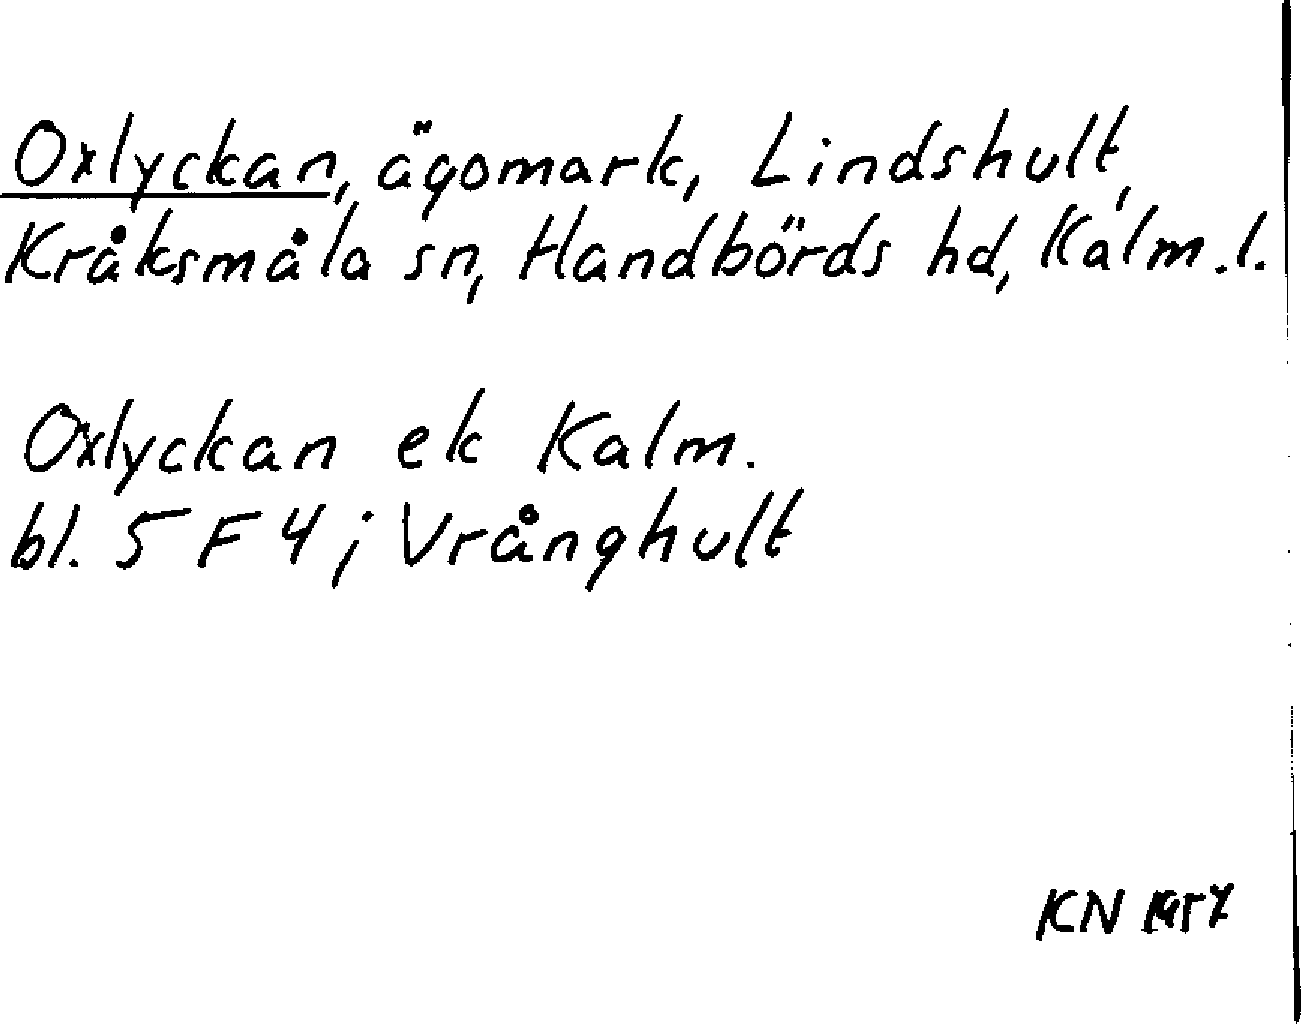 Oxlyckan, ägomark, Lindshult,
Kråksmåla sn, Handbörds hd, Kalm.l.
Oxlyckan ek Kalm.
bl. 5 F 4 ; Vrånghult
KN 1957